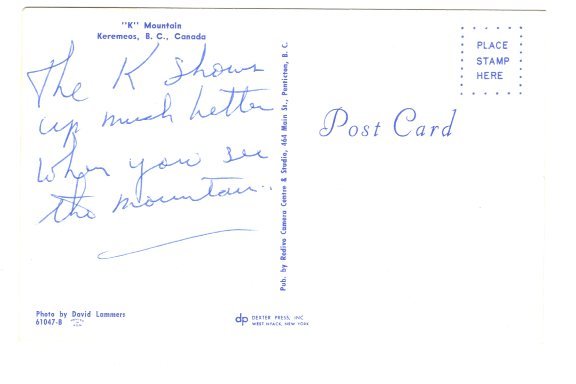 "K" Mountain
Keremeos, B. C., Canada
The K shows
up much better
when you see
the mountain..
Pub. by Redivo Camera Centre & Studio, 464 Main St., Penticton, B. C.
PLACE
STAMP
HERE
Post Card
Photo by David Lammers
61047-B
dp DEXTER PRESS, INC
WEST NYACK, NEW YORK